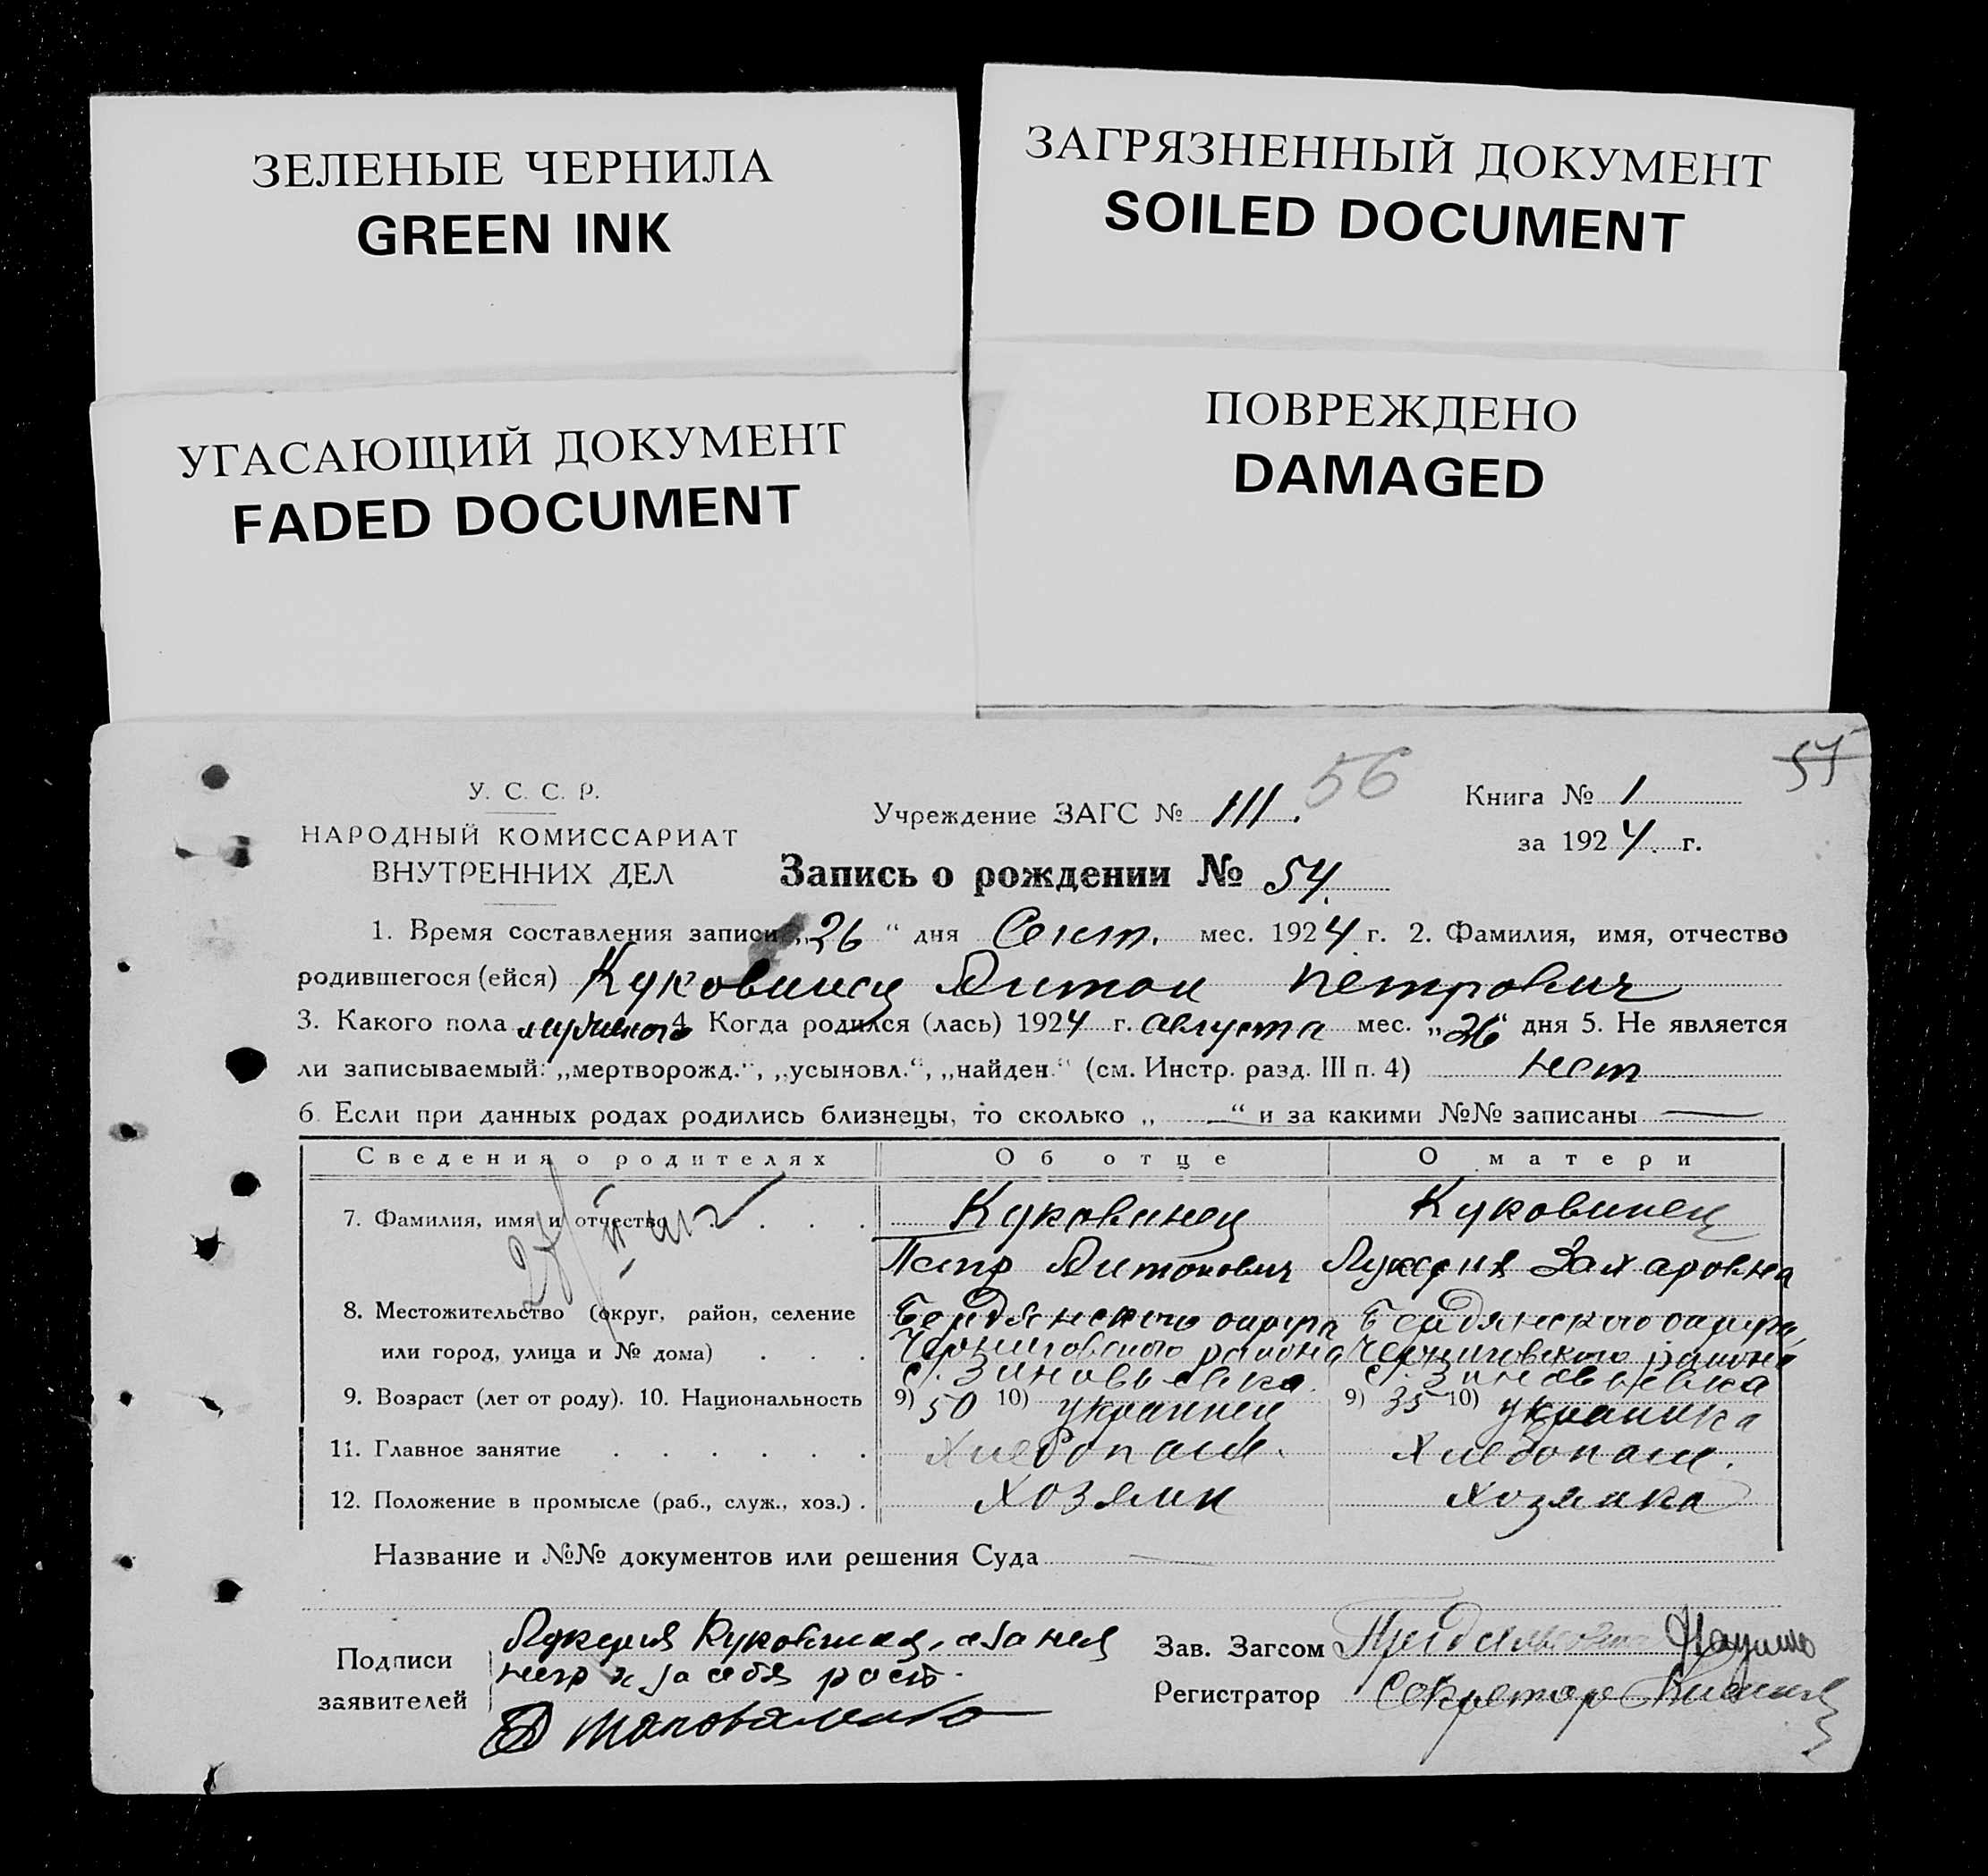 ЗЕЛЕНЫЕ ЧЕРНИЛА
GREEN INK
ЗАГРЯЗНЕННЫЙ ДОКУМЕНТ
SOILED DOCUMENT
УГАСАЮЩИЙ ДОКУМЕНТ
FADED DOCUMENT
ПОВРЕЖДЕНО
DAMAGED
55
56
У. С. С. Р.
НАРОДНЫЙ КОМИССАРИАТ
ВНУТРЕННИХ ДЕЛ
Учреждение ЗАГС № III.
Книга № 1
за 1924 г.
Запись о рождении № 54.
1. Время составления записи „26" дня Сент. мес. 1924 г. 2. Фамилия, имя, отчество
родившегося (ейся) Куковинец Антон Петрович
3. Какого пола мужского 4. Когда родился (лась) 1924 г. августа мес. „26" дня 5. Не является
ли записываемый: „мертворожд.", „усыновл.", „найден." (см. Инстр. разд. III п. 4) нет
6. Если при данных родах родились близнецы, то сколько „ — " и за какими №№ записаны —
Сведения о родителях Об отце О матери
7. Фамилия, имя и отчество . . . . Куковинец Куковинец
Петр Антонович Лукерия Захаровна
8. Местожительство (округ, район, селение Бердянского округа Бердянского округа,
или город, улица и № дома) . . . Черниговского района Черниговского района
с. Зиновьевка. с. Зиновьевка
9. Возраст (лет от роду). 10. Национальность 9) 50 10) украинец 9) 35 10) украинка
11. Главное занятие . . . . . . Хлебопаш. Хлебопаш.
12. Положение в промысле (раб., служ., хоз.) . хозяин хозяйка
Название и №№ документов или решения Суда —
Подписи
заявителей
Лукерия Куковинец, а за нея
негр и за себя рост.
Шаповаленко
Зав. Загсом
Регистратор Секретарь